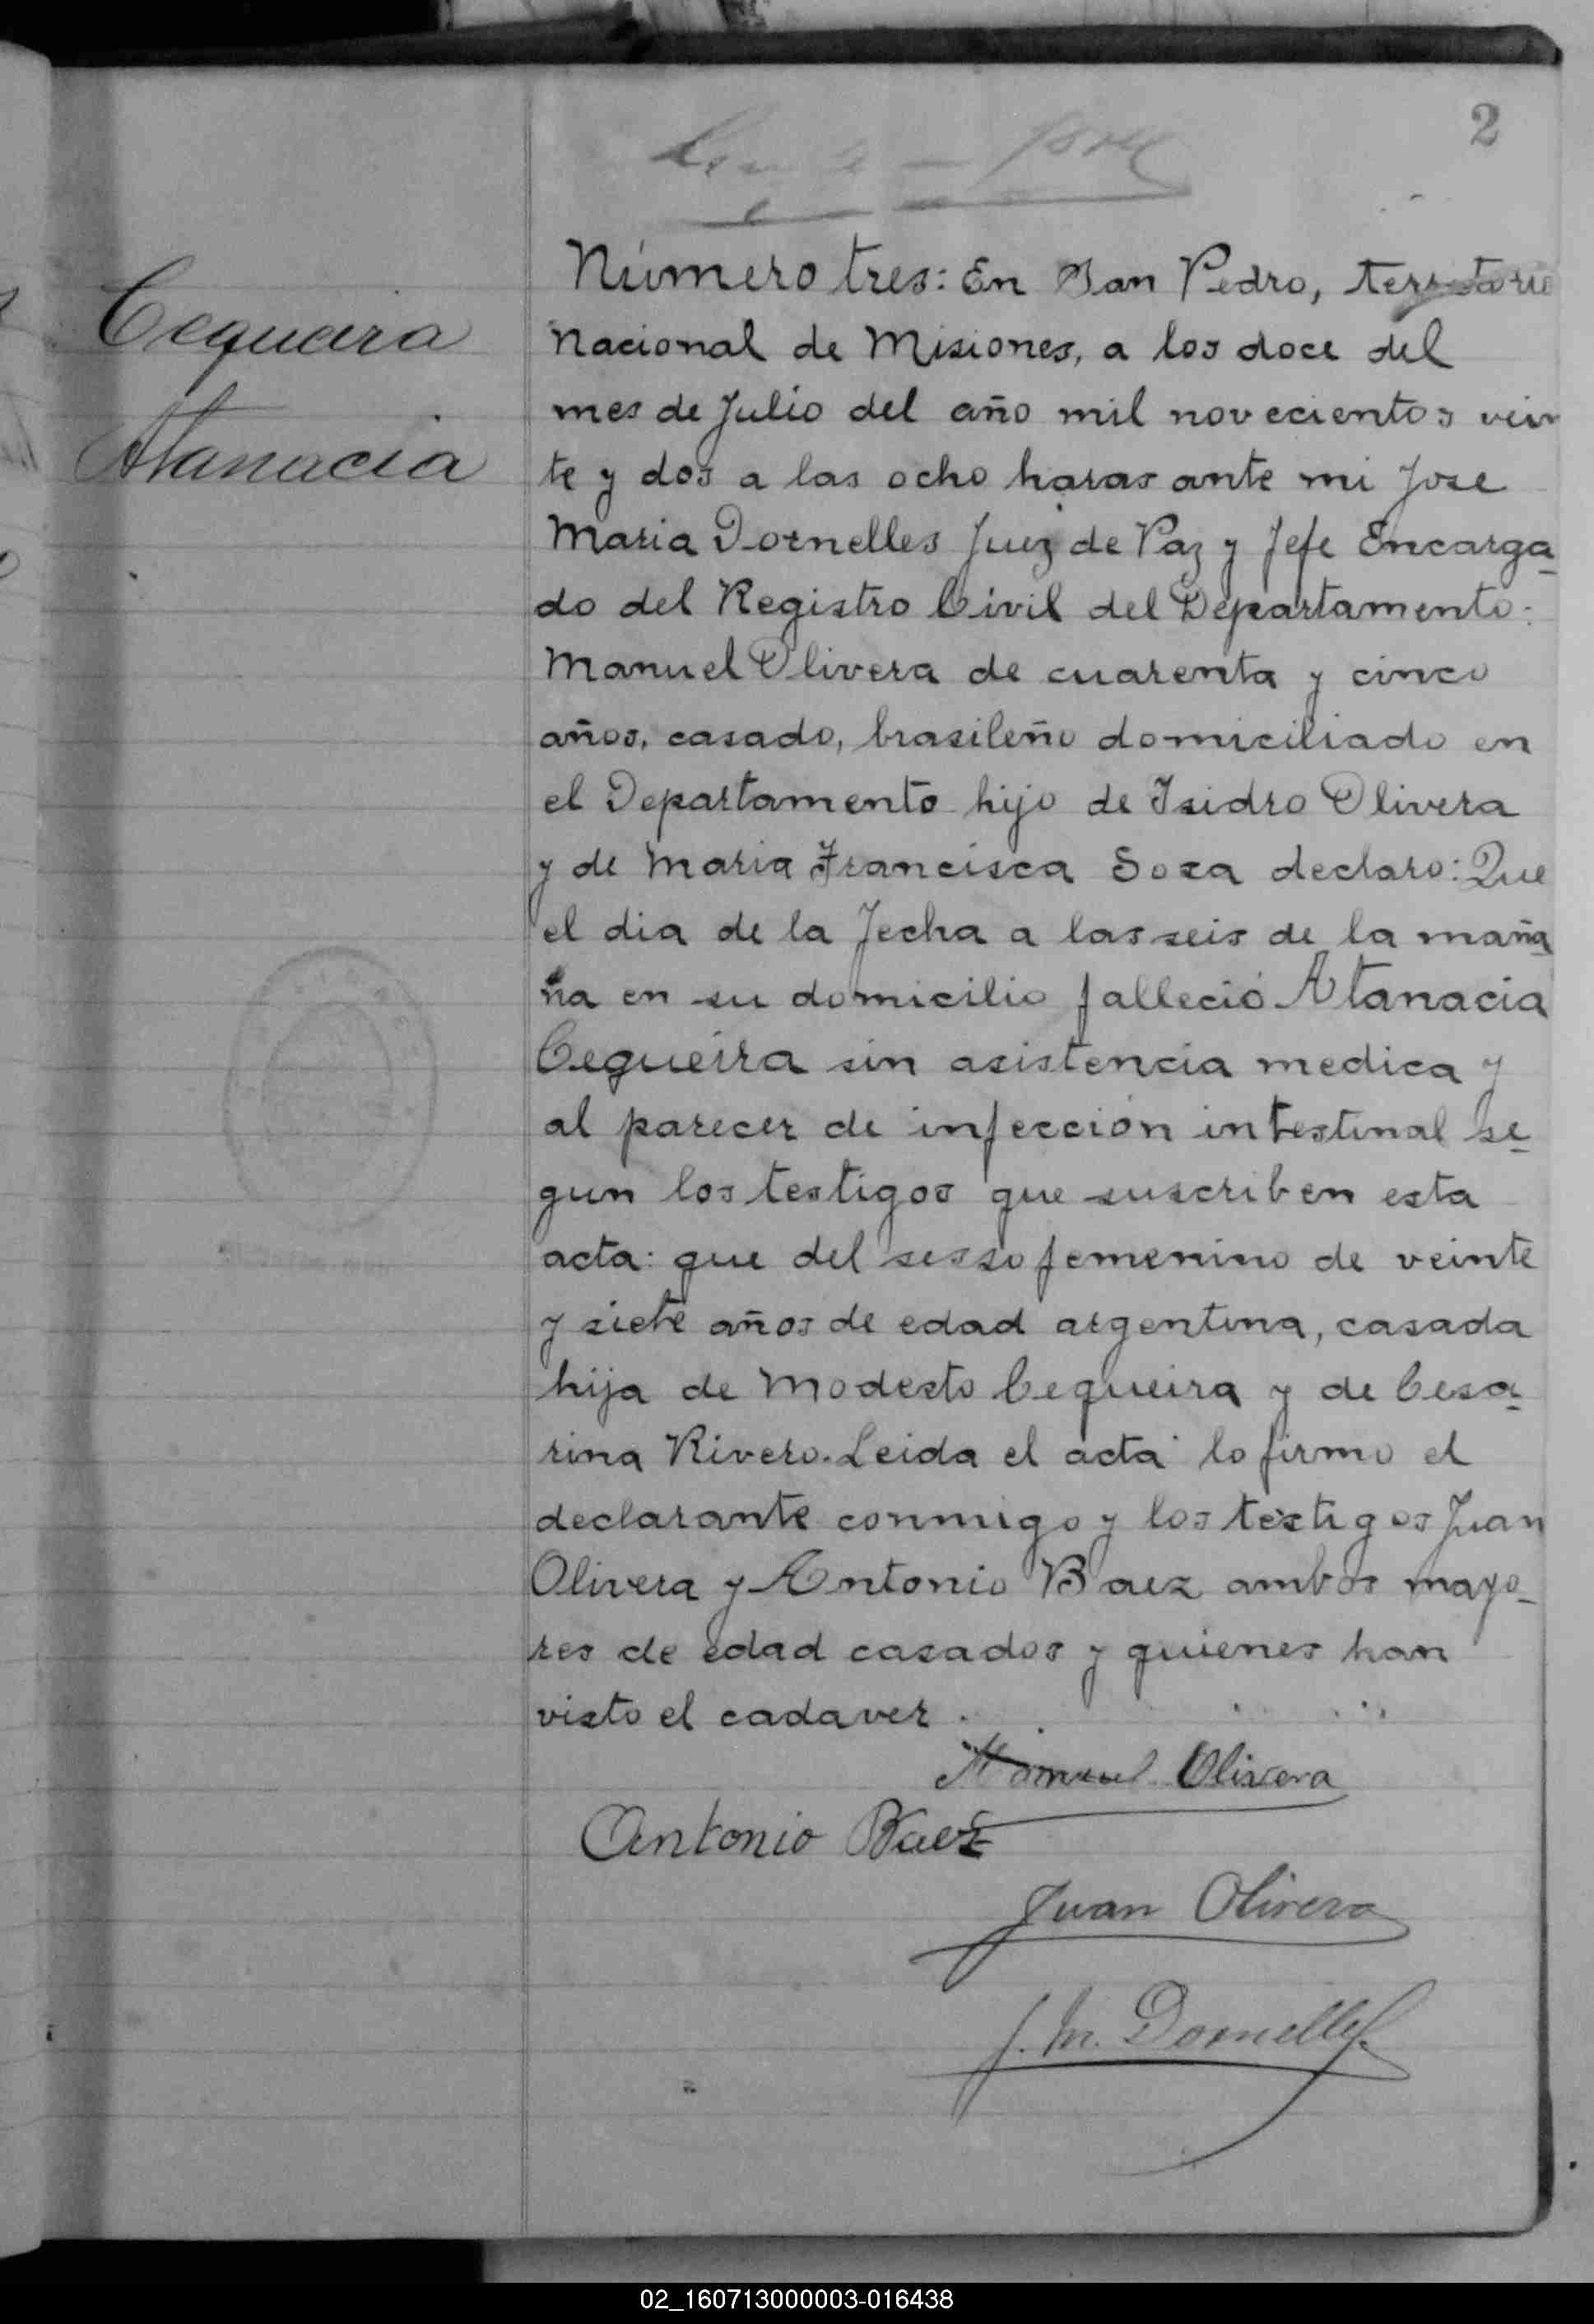 2
Cequeira
Atanacia
Número tres: En San Pedro, territorio
Nacional de Misiones, a los doce del
mes de Julio del año mil novecientos vein
te y dos a las ocho horas ante mi Jose
Maria Dornelles Juez de Paz y Jefe Encarga
do del Registro Civil del Departamento:
Manuel Olivera de cuarenta y cinco
años, casado, brasileño domiciliado en
el Departamento hijo de Isidro Olivera
y de Maria Francisca Sosa declaro: Que
el dia de la fecha a las seis de la maña
na en su domicilio falleció Atanacia
Cequeira sin asistencia medica y
al parecer de infección intestinal se
gun los testigos que suscriben esta
acta: que del sesso femenino de veinte
y siete años de edad argentina, casada
hija de Modesto Cequeira y de Cesa
rina Rivero. Leida el acta lo firmo el
declarante conmigo y los testigos Juan
Olivera y Antonio Baez ambos mayo-
res de edad casados y quienes han
visto el cadaver.
Manuel Olivera
Antonio Baez
Juan Olivera
J. M. Dornelles
02_160713000003-016438